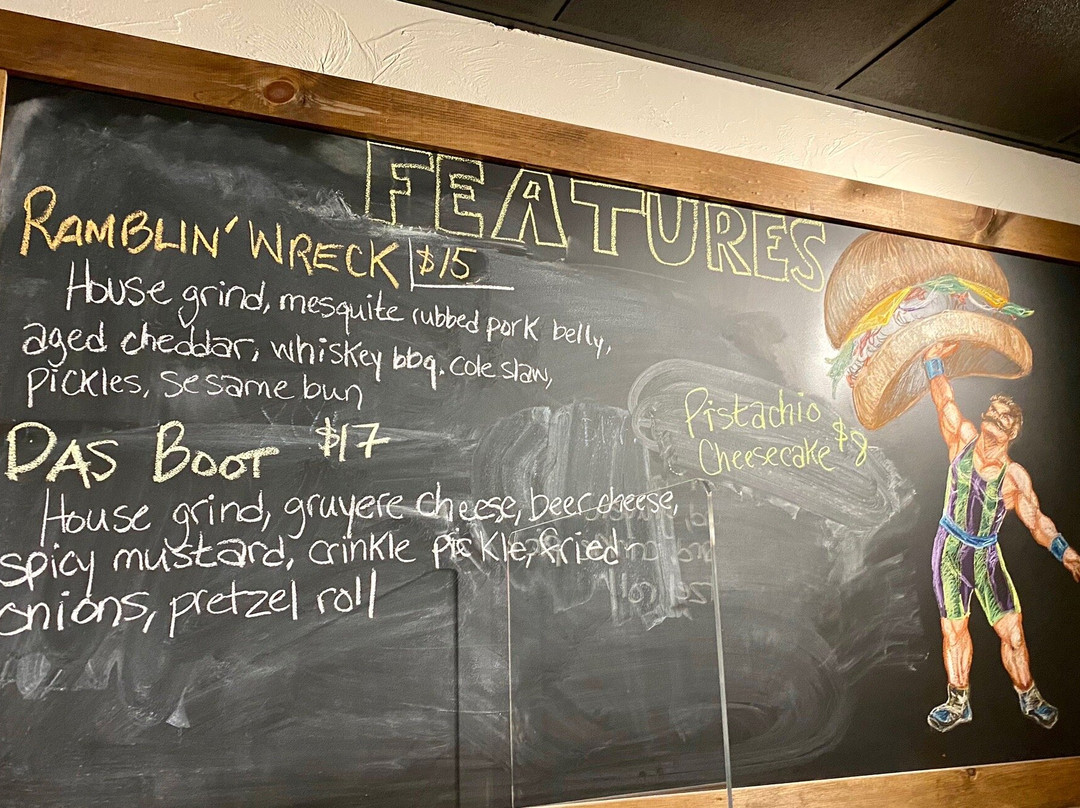 FEATURES
RAMBLIN' WRECK $15
House grind, mesquite rubbed pork belly,
aged cheddar, whiskey bbq, cole slaw,
pickles, sesame bun
DAS BOOT $17
House grind, gruyere cheese, beer cheese,
spicy mustard, crinkle pickle, fried
onions, pretzel roll
Pistachio
Cheesecake $8